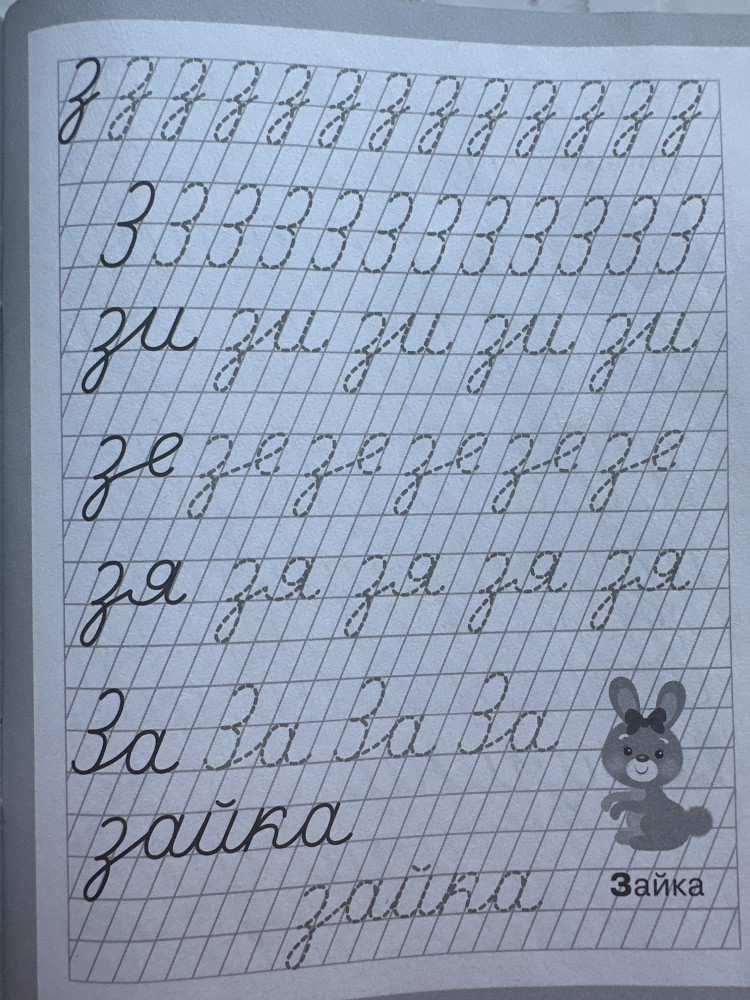 з з з з з з з з з з з з з
З З З З З З З З З З З З
зи зи зи зи зи
зе зе зе зе зе зе
зя зя зя зя зя
За За За За
зайка
зайка
Зайка